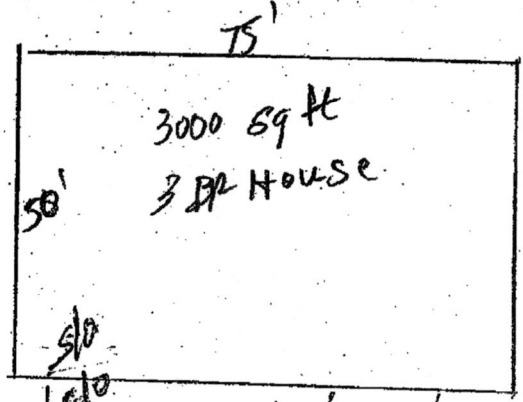 75'
3000 sq ft
3 BR House
50'